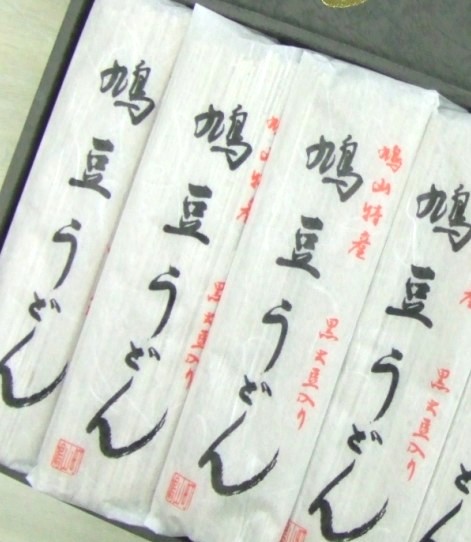 鳩豆うどん
鳩山特産
鳩豆うどん
黒大豆入り
鳩山特産
鳩豆うどん
黒大豆入り
鳩豆うどん
黒大豆入り